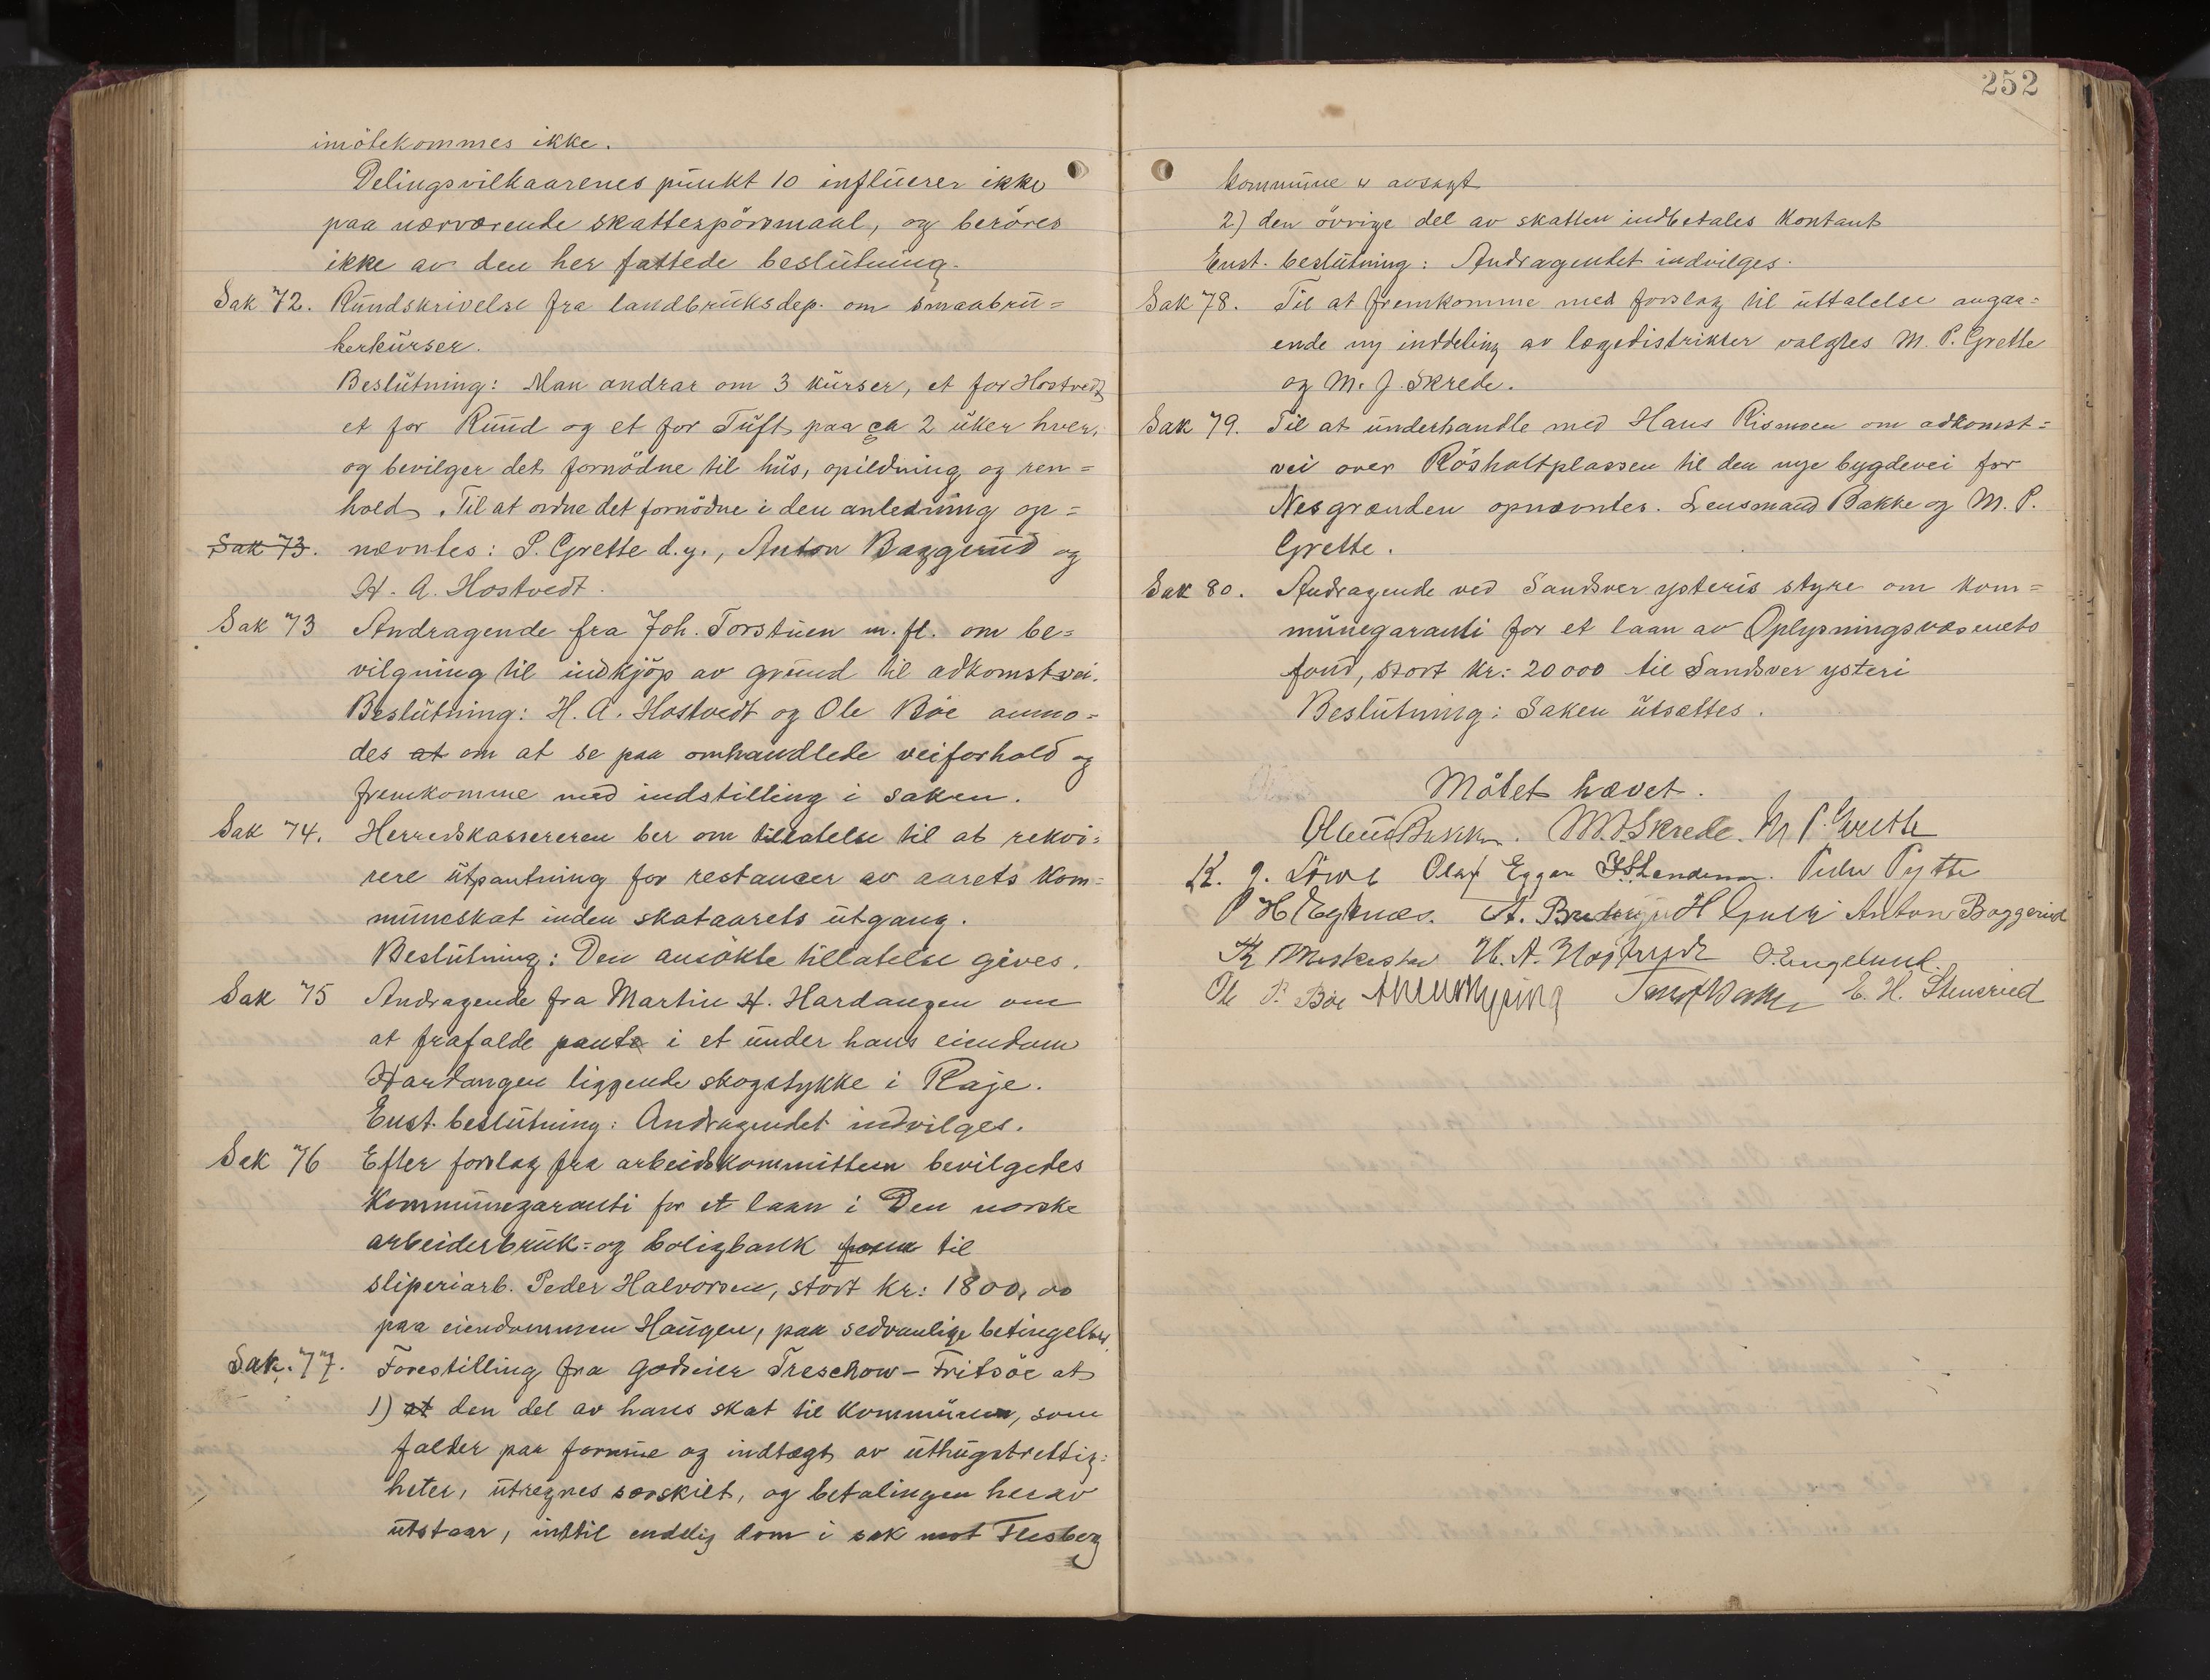 imötekommes ikke.
Delingsvilkaarenes punkt 10 influerer ikke
paa nærværende skattespörsmaal, og beröres
ikke av den her fattede beslutning.
Sak 72. Rundskrivelse fra landbruksdep. om smaabru=
kerkurser.
Beslutning: Man andrar om 3 kurser, et for Hostvedt
et for Ruud og et for Tuft paa ca 2 uker hver,
og bevilger det fornödne til hus, opildning og ren=
hold. Til at ordne det fornödne i den anledning op=
Sak 73. nævntes: P. Grette d.y., Anton Baggerud og
H. A. Hostvedt.
Sak 73 Andragende fra Joh. Torstuen m. fl. om be=
vilgning til indkjöp av grund til adkomstvei.
Beslutning: H. A. Hostvedt og Ole Böe anmo=
des at om at se paa omhandlede veiforhold og
fremkomme med indstilling i saken.
Sak 74. Herredskassereren ber om tillatelse til at rekvi=
rere utpantning for restancer av aarets kom=
muneskat inden skataarets utgang.
Beslutning: Den ansökte tillatelse gives.
Sak 75 Andragende fra Martin H. Hardangen om
at frafalde pante i et under hans eiendom
Hardangen liggende skogstykke i Raje.
Enst. beslutning: Andragendet indvilges.
Sak 76 Efter forslag fra arbeidskommitteen bevilgedes
kommunegaranti for et laan i Den norske
arbeiderbruk= og boligbank til
sliperiarb. Peder Halvorsen, stort kr: 1800,00
paa eiendommen Haugen, paa sedvanlige betingelser.
Sak. 77. Forestilling fra godseier Treschow-Fritsöe at
1) at den del av hans skat til kommunen, som
falder paa formue og indtægt av uthugstrettig=
heter, utregnes særskilt, og betalingen herav
utstaar, indtil endelig dom i sak mot Flesberg
252
kommune er avsagt
2) den övrige del av skatten indbetales kontant
Enst. beslutning: Andragendet indvilges.
Sak 78. Til at fremkomme med forslag til uttalelse angaa=
ende ny inddeling av lægedistrikter valgtes M. P. Grette
og M. J. Skrede.
Sak 79. Til at underhandle med Hans Rismoen om adkomst=
vei over Rösholtplassen til den nye bygdevei for
Nesgrænden opnævntes. Lensmand Bakke og M. P.
Grette.
Sak 80. Andragende ved Sandsver ysteris styre om kom=
munegaranti for et laan av Oplysningsvæsenets
fond, stort kr: 20000 til Sandsver ysteri
Beslutning: Saken utsættes.
Mötet hævet.
M. J. Skrede. M P. Grette
Olaf Eggar Peder Pytte
Anton Baggerud
H. A. Hostvedt O. Engelund.
Ole P. Böe E. H. Stensrud